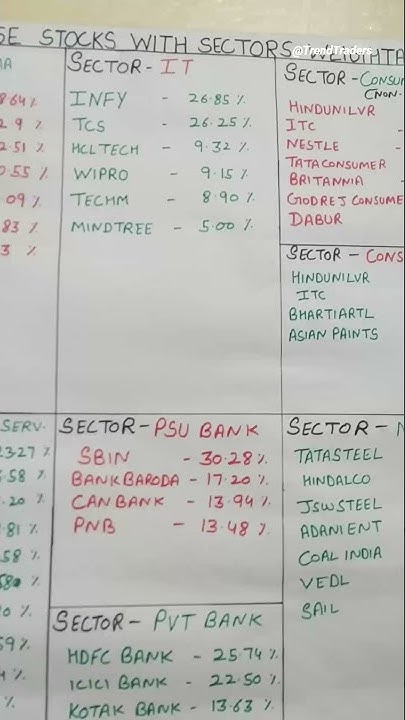 SE STOCKS WITH SECTORS WEIGHTA
@TrendTraders
MA
8.64%
2.9 %
2.51 %
0.55 %
.09 %
.83 %
3 %
SECTOR - IT
INFY - 26.85 %
TCS - 26.25 %
HCLTECH - 9.32 %
WIPRO - 9.15 %
TECHM - 8.90 %
MINDTREE - 5.00 %
SECTOR - CONSUM
(NON-
HINDUNILVR
ITC -
NESTLE -
TATACONSUMER
BRITANNIA -
GODREJ CONSUME
DABUR
SECTOR - CONS
HINDUNILVR
ITC
BHARTIARTL
ASIAN PAINTS
SERV.
2327 %
.58 %
.20 %
.81 %
.58 %
580 %
0 %
59 %
4 %
%
SECTOR - PSU BANK
SBIN - 30.28 %
BANKBARODA - 17.20 %
CANBANK - 13.94 %
PNB - 13.48 %
SECTOR - PVT BANK
HDFC BANK - 25.74 %
ICICI BANK - 22.50 %
KOTAK BANK - 13.63 %
SECTOR - M
TATASTEEL
HINDALCO
JSWSTEEL
ADANIENT
COAL INDIA
VEDL
SAIL